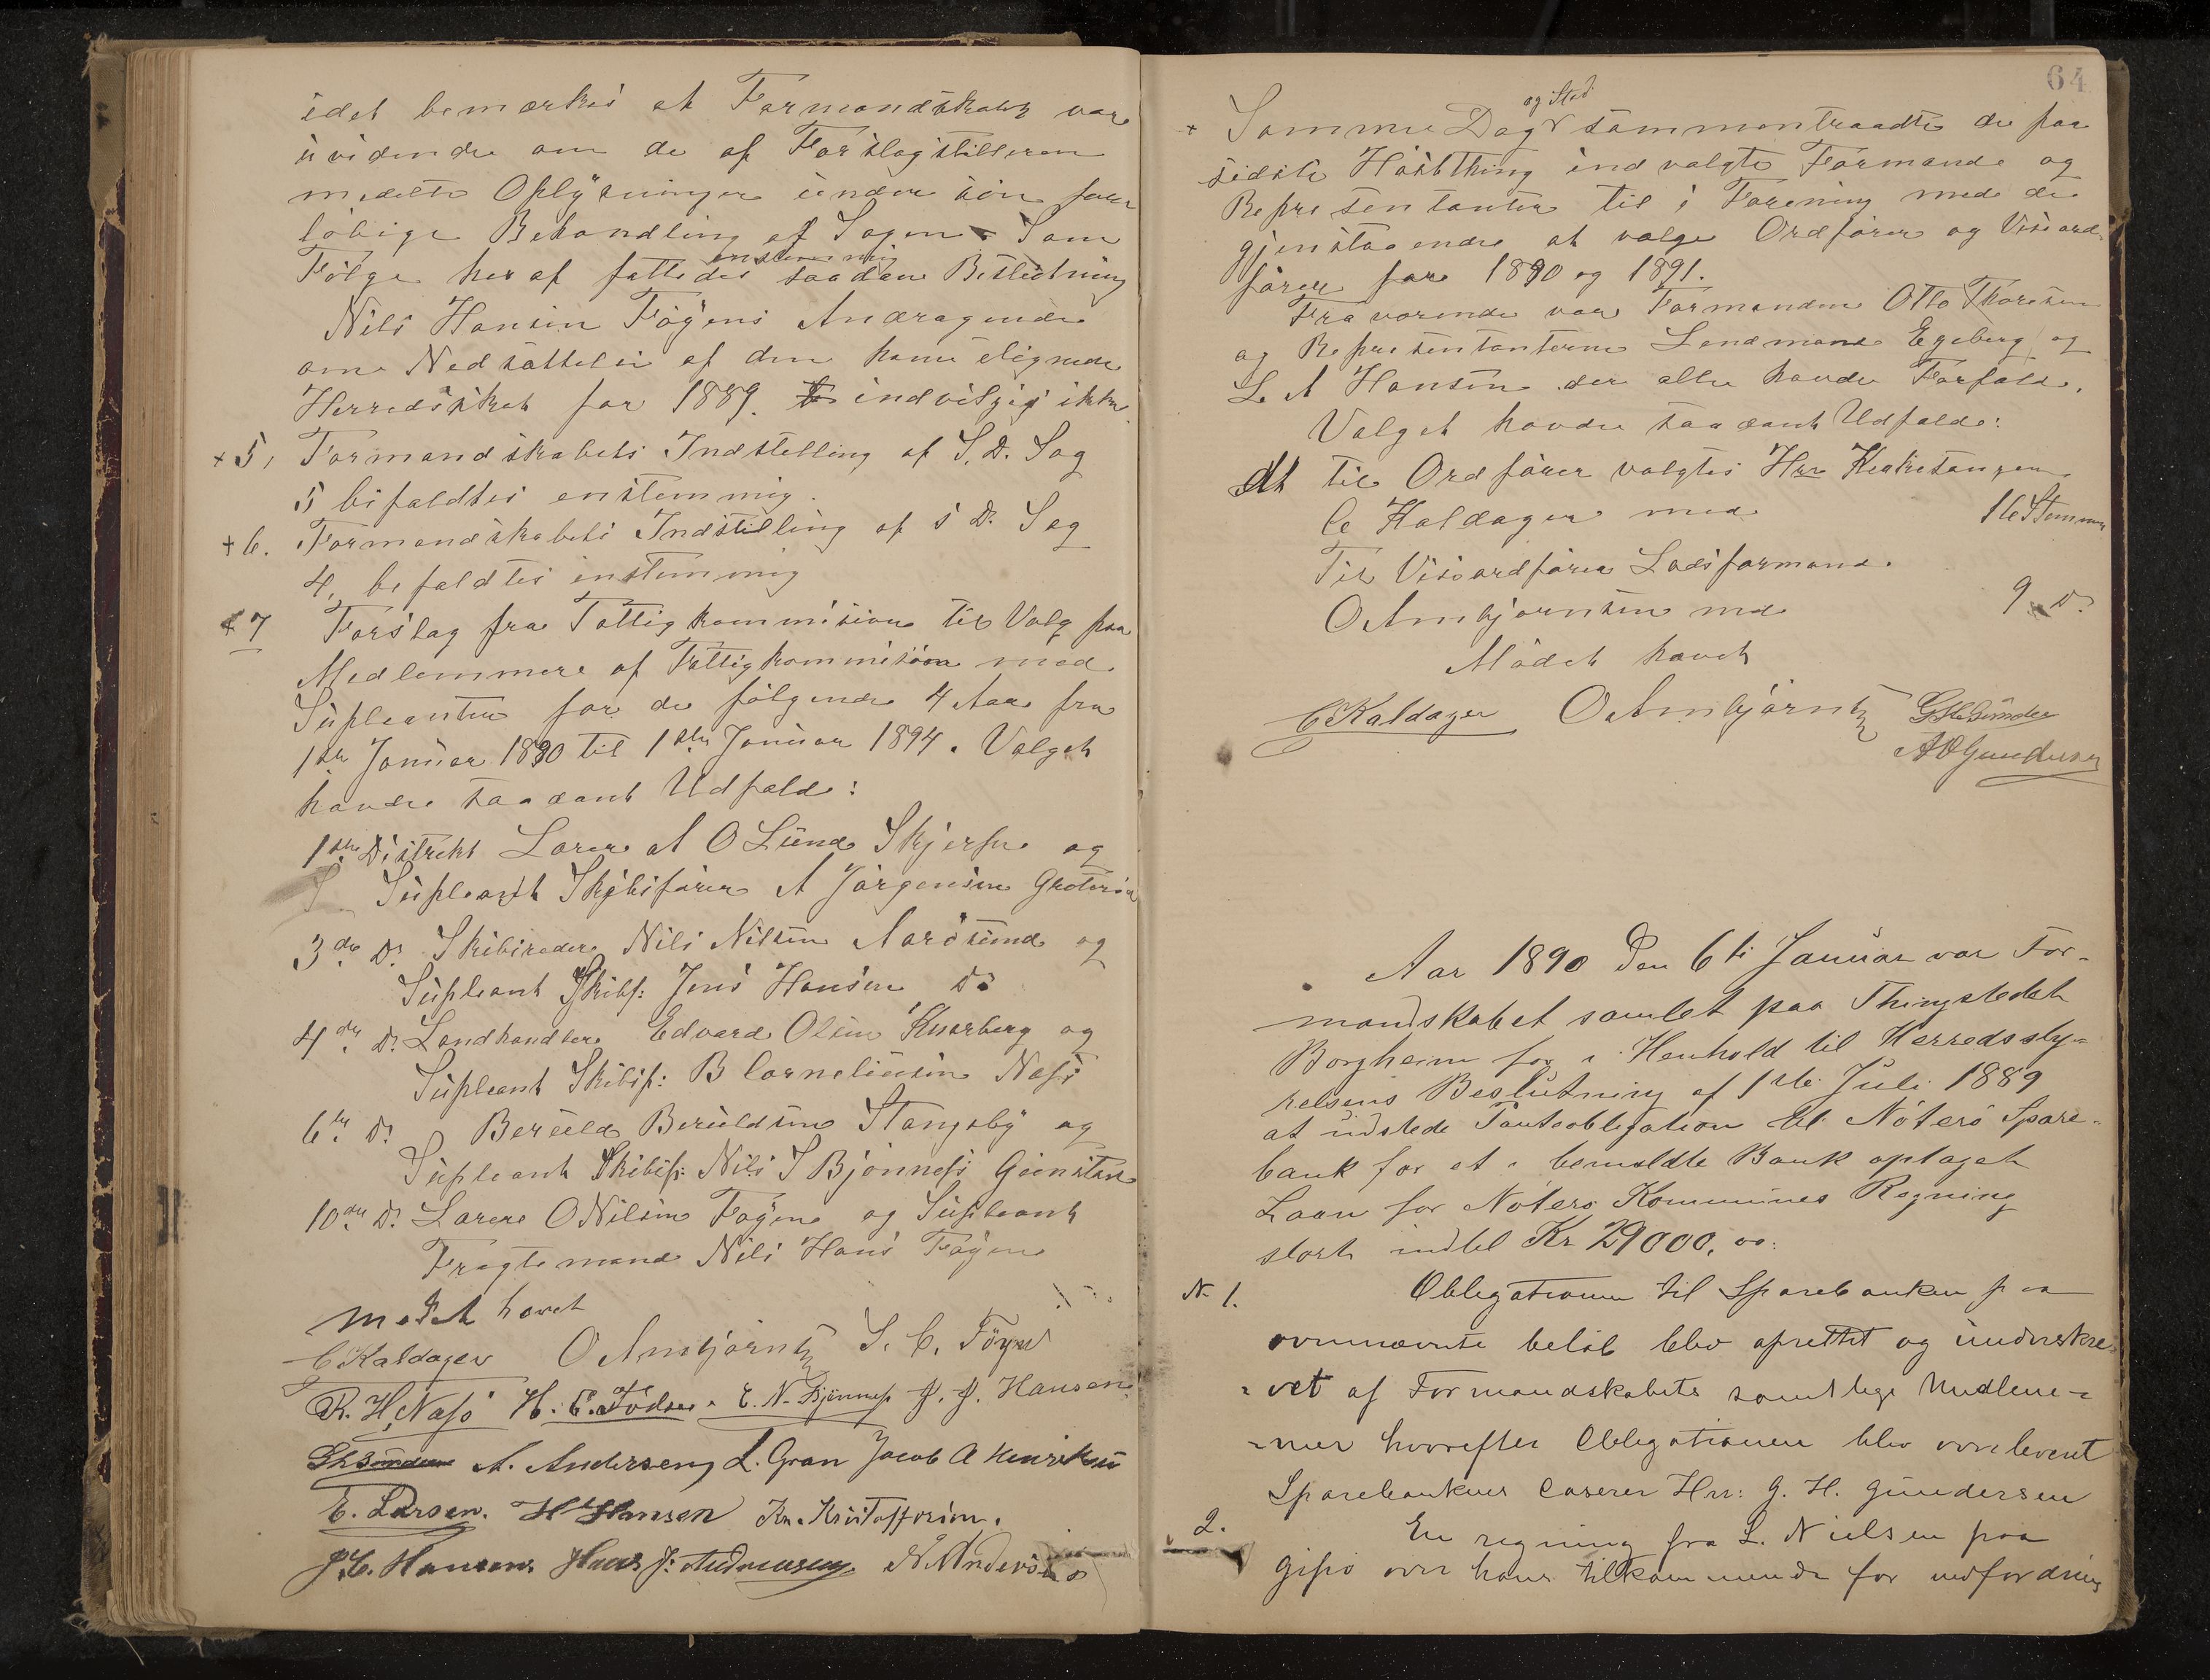 idet bemærkes at Formandskabet var
uvidende om de af Forslagstilleren
meddelte Oplysninger under sin fore
løbige Behandling af Sagen. Som
Følge heraf fattedes enstemmig saadan Beslutning
Nils Hansen Føyens Andragende
om Nedsættelse af den ham ilignede
Herredsskat for 1889. indvilges ikke
+ 5, Formandskabets Indstilling af S. D. Sag
5 bifaldtes enstemmig.
+ 6. Formandskabets Indstilling af S D. Sag
4, bifaldtes enstemmig
+ 7 Forslag fra Fattigkommisionen til Valg paa
Medlemmer af Fattigkommision med
Supleanter for de følgende 4 Aar fra
1ste Januar 1890 til 1ste Januar 1894. Valget
havde saadant Udfald:
1ste Distrikt Lærer A O Lund Skjerfve og
Supleant Skibsfører A Jørgensen
3die Do. Skibsreder Nils Nilsen Aarøsund og
Supleant Skibsf: Jens Hansen Do
4de Do. Landhandler Edvard Olsen Knarberg og
Supleant Skibsf: B Corneliusen Næss
6te Do. Beruld Beruldsen Stangeby og
Supleant Skibsf: Nils S Bjønness
10de Do. Lærer O Nilsen Føyen og Supleant
Fragtemand Nils Hans Føyen
Mødet hævet
C Kaldager O Ambjørns S. C. Føyn
R. H. Næss H. C. Fødsen. E. N. Bjønness J. J. Hansen
A. Andersen L. Gran Jacob A Henriksen
E. Larsen. H Hansen Kr. Kristoffersen.
J. C. Hansen. Hans J. Andreasen N. Andersen
64
+ Samme Dag og Sted sammentraadte de paa
sidste Høstthing indvalgte Formænd og
Representanter til i Forening med de
gjenstaaende at valge Ordfører og Viseord-
fører for 1890 og 1891.
Fraværende var Formanden Otto Thoresen
og Representanterne Lensmand Egeberg og
L A Hansen der alle havde Forfald.
Valget havde saadant Udfald:
At til Ordfører valgtes Hrr Kirkesanger
C Kaldager med 16 Stemmer
Til Viseordfører Lodsformand
O Ambjørnsen med 9 Do.
Mødet hævet
C Kaldager O Ambjørns G H Gunder
A O Gundersen
Aar 1890 Den 6te Januar var For-
mandskabet samlet paa Thingstedet
Borgheim for i Henhold til Herredssty-
relsens Beslutning af 1ste Juli 1889
at udstede Panteobligation til Nøterø Spare-
bank for et i bemeldte Bank optaget
Laan for Nøterø Kommunes Regning
stort indtil Kr 29000,00.
N 1. Obligationen til Sparebanken paa
ovennævnte beløb blev oprettet og underskre-
-vet af Formandskabets samtlige Medlem-
-mer hvorefter Obligationen blev overleveret
Sparebankens Caserer Hrr: G. H. Gundersen
2. En regning fra L. Nielsen paa
Gipø over hans tilkommende for udfordring